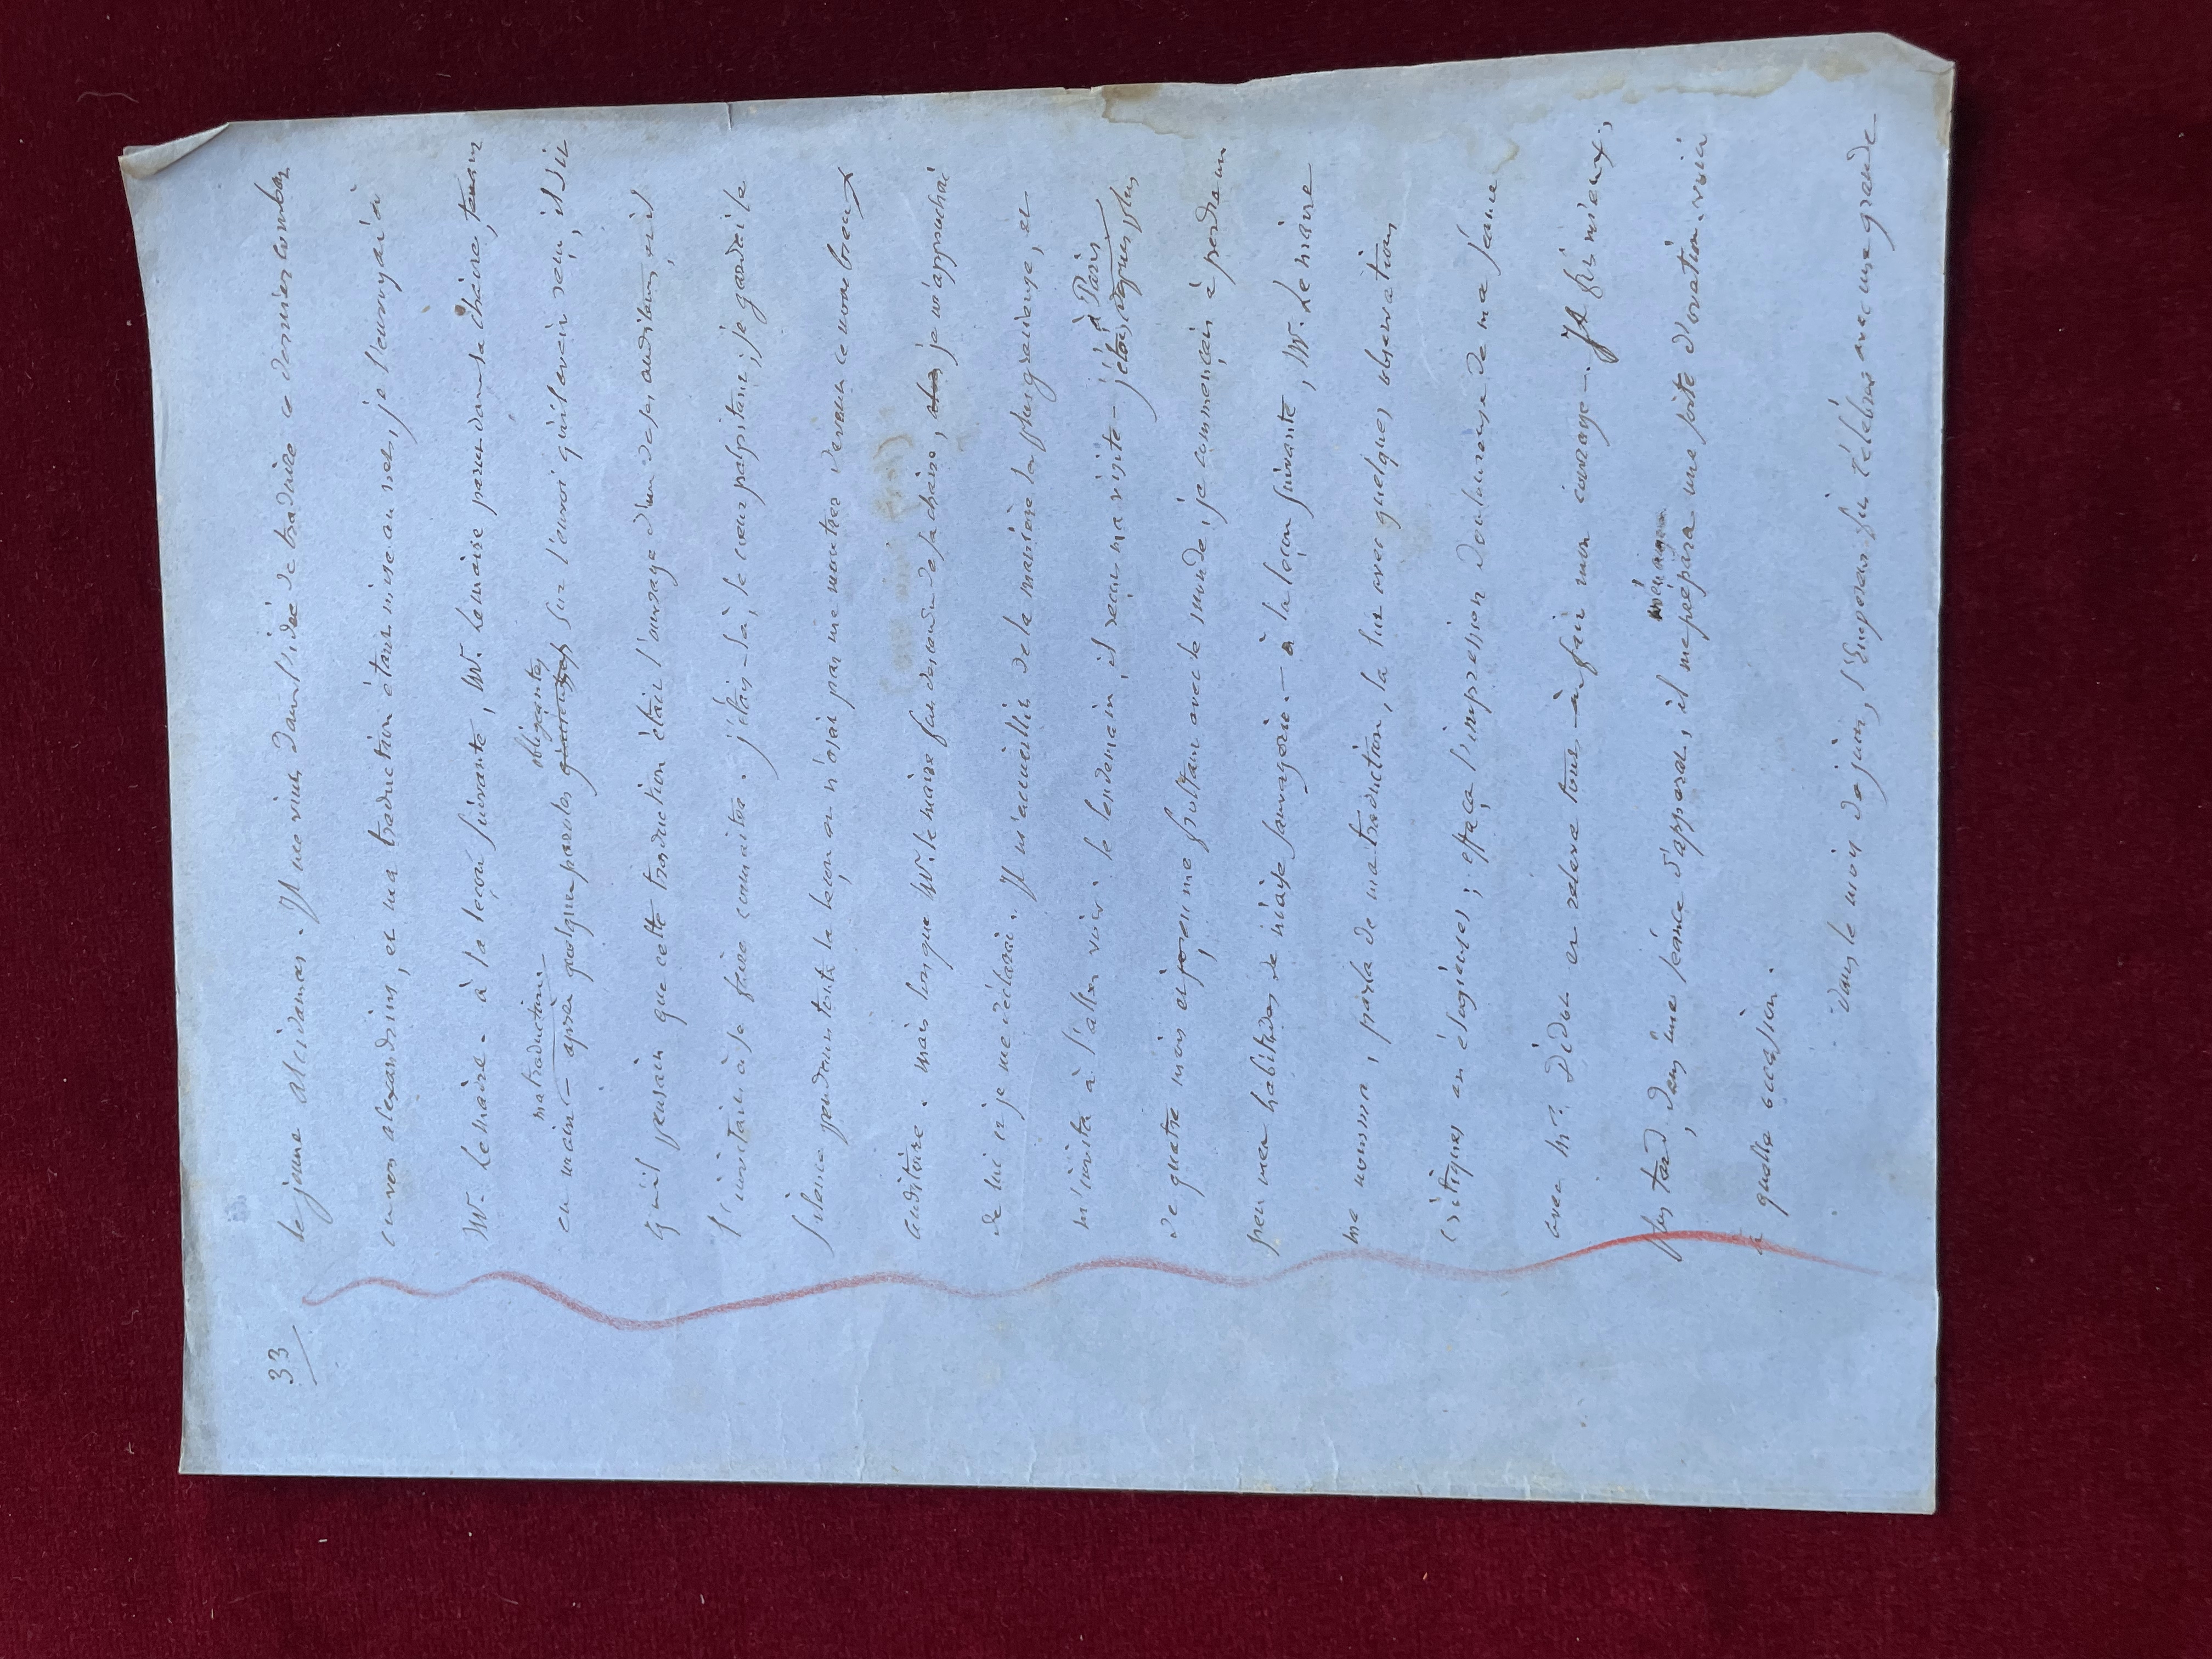 33
le jeune alcidamas. Il me vint dans l'idée de traduire ce dernier combat
en vers alexandrins, et ma traduction étant mise au net, je l'envoyai à
Mr. Lemaire. à la leçon suivante, Mr. Lemaire parut dans sa chaire, tenant
ma traduction
en main — après quelques paroles obligeantes sur l'envoi qu'il avait reçu, il dit
qu'il pensait que cette traduction était l'ouvrage d'un de ses auditeurs, et il
l'invitait à se faire connaître. j'étais là, le cœur palpitant; je gardai le
silence pendant toute la leçon, et n'osai pas me montrer devant ce nombreux
auditoire. mais lorsque Mr. Lemaire fut descendu de sa chaire, je m'approchai
de lui et je me déclarai. Il m'accueillit de la manière la plus gracieuse, et
m'invita à l'aller voir. le lendemain, il reçut ma visite — j'étais à Paris depuis plus
de quatre mois et, en me frottant avec le monde, je commençais à perdre un
peu mes habitudes de niaise sauvagerie. — à la leçon suivante, Mr. Lemaire
me nomma, parla de ma traduction, la lut avec quelques observations
critiques ou élogieuses; effaça l'impression douloureuse de ma séance
avec Mr. Didot et releva tout à fait mon courage. — Il fit mieux,
plus tard, dans une séance d'apparat, il me prépara ménagea une sorte d'ovation. voici
à quelle occasion.
Dans le mois de juin, l'Empereur fut célébré avec une grande